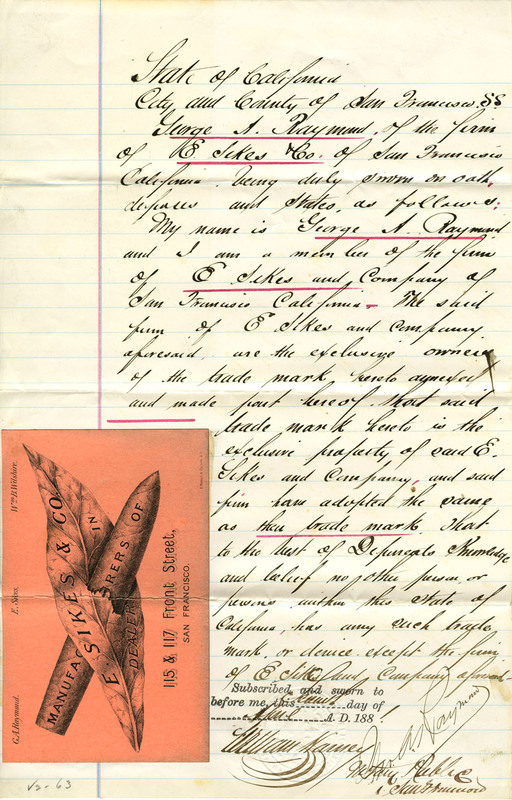 State of California
City, and County of San Francisco. SS
George A. Raymond, of the firm
of E Sikes & Co. of San Francisco
California. being duly sworn on oath,
deposes and states, as follows:
My name is George A. Raymond
and I am a member of the firm
of E Sikes and Company of
San Francisco California. The said
firm of E Sikes and Company
aforesaid, are the exclusive owners
of the trade mark, hereto annexed
and made part hereof. That said
trade mark hereto is the
exclusive property of said E.
Sikes and Company, and said
firm have adopted the same
as their trade mark. That
to the best of Deponents Knowledge
and belief no other person, or
persons within this State of
California, has any such trade
mark, or device except the firm
of E Sikes and Company aforesaid-
Subscribed and sworn to
before me, this day of
April A. D. 188
Geo A Raymond
William Harney
Notary Public
San Francisco
Wm. B. Wilshire.
E. Sikes.
G.A. Raymond.
E. SIKES & CO.
MANUFACTURERS OF
DEALERS IN
115 & 117 Front Street,
SAN FRANCISCO.
V2-63